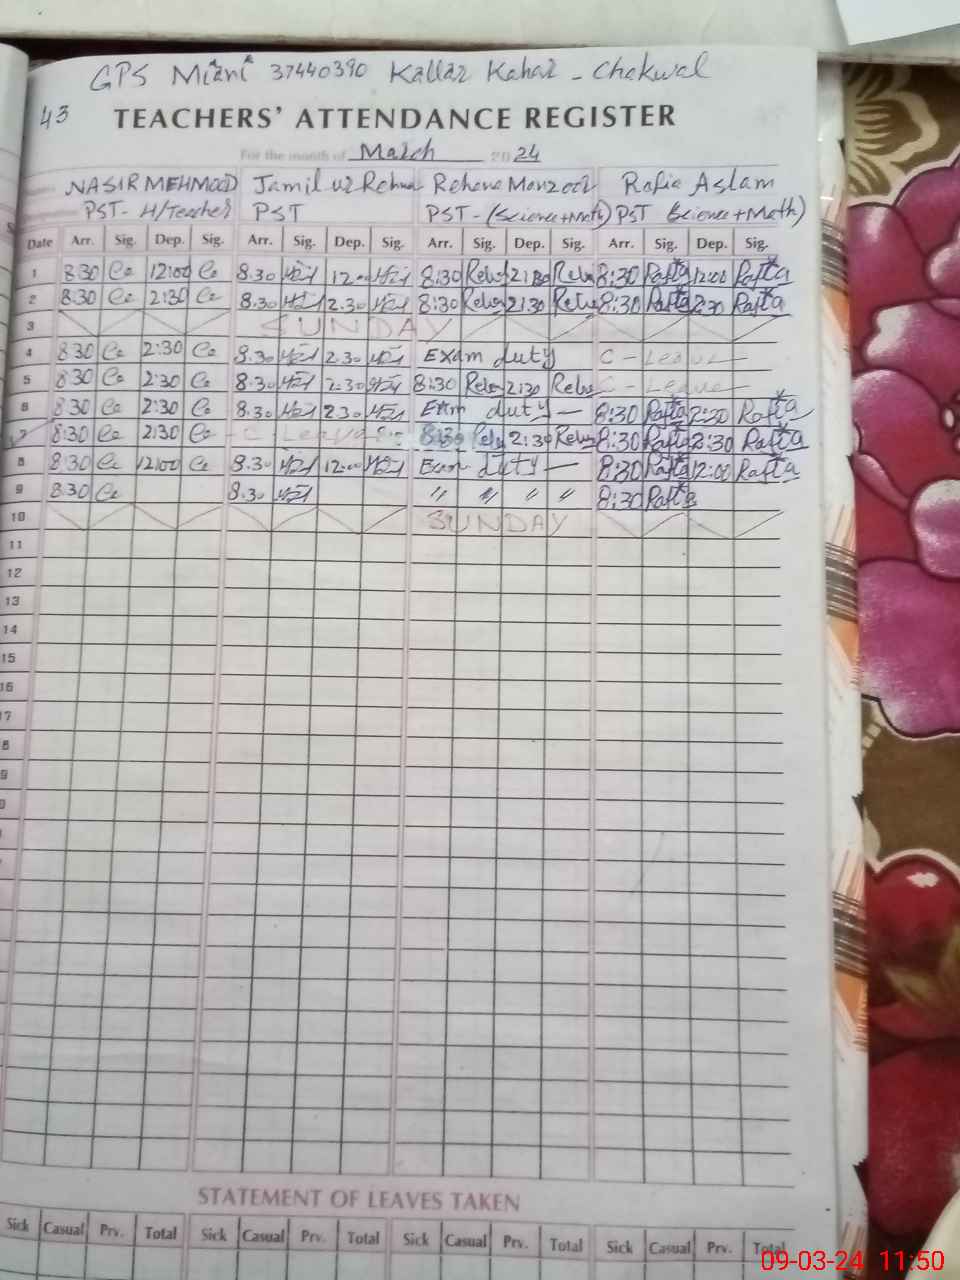 GPS Miani 37440390 Kallar Kahar - Chakwal
43 TEACHERS' ATTENDANCE REGISTER
For the month of March 2024
NASIR MEHMOOD Jamil ur Rehma Rehana Manzoor Rafia Aslam
PST- H/Teacher PST PST-(Science+Math) PST (Science+Math)
Date Arr. Sig. Dep. Sig. Arr. Sig. Dep. Sig. Arr. Sig. Dep. Sig. Arr. Sig. Dep. Sig.
1 8 30 12:00 8.30 12.00 8:30 8:30 Rafia 12:00 Rafia
2 8:30 2:30 8.30 2.30 8:30 2:30 8:30 Rafia 2:30 Rafia
3 SUNDAY
4 8 30 2:30 8.30 2.30 Exam duty C - Leave
5 8:30 2:30 8.30 2.30 8:30 2:30 C - Leave
6 8:30 2:30 8.30 2.30 Exam duty — 8:30 Rafia 2:30 Rafia
7 8:30 2:30 - C - Leave 8:30 2:30 8:30 Rafia 2:30 Rafia
8 8:30 12:00 8.30 12.00 Exam duty — 8:30 Rafia 12:00 Rafia
9 8:30 8.30 " " " " 8:30 Rafia
10 SUNDAY
11
12
13
14
15
16
17
8
9
STATEMENT OF LEAVES TAKEN
Sick Casual Prv. Total Sick Casual Prv. Total Sick Casual Prv. Total Sick Casual Prv. Total
09-03-24 11:50